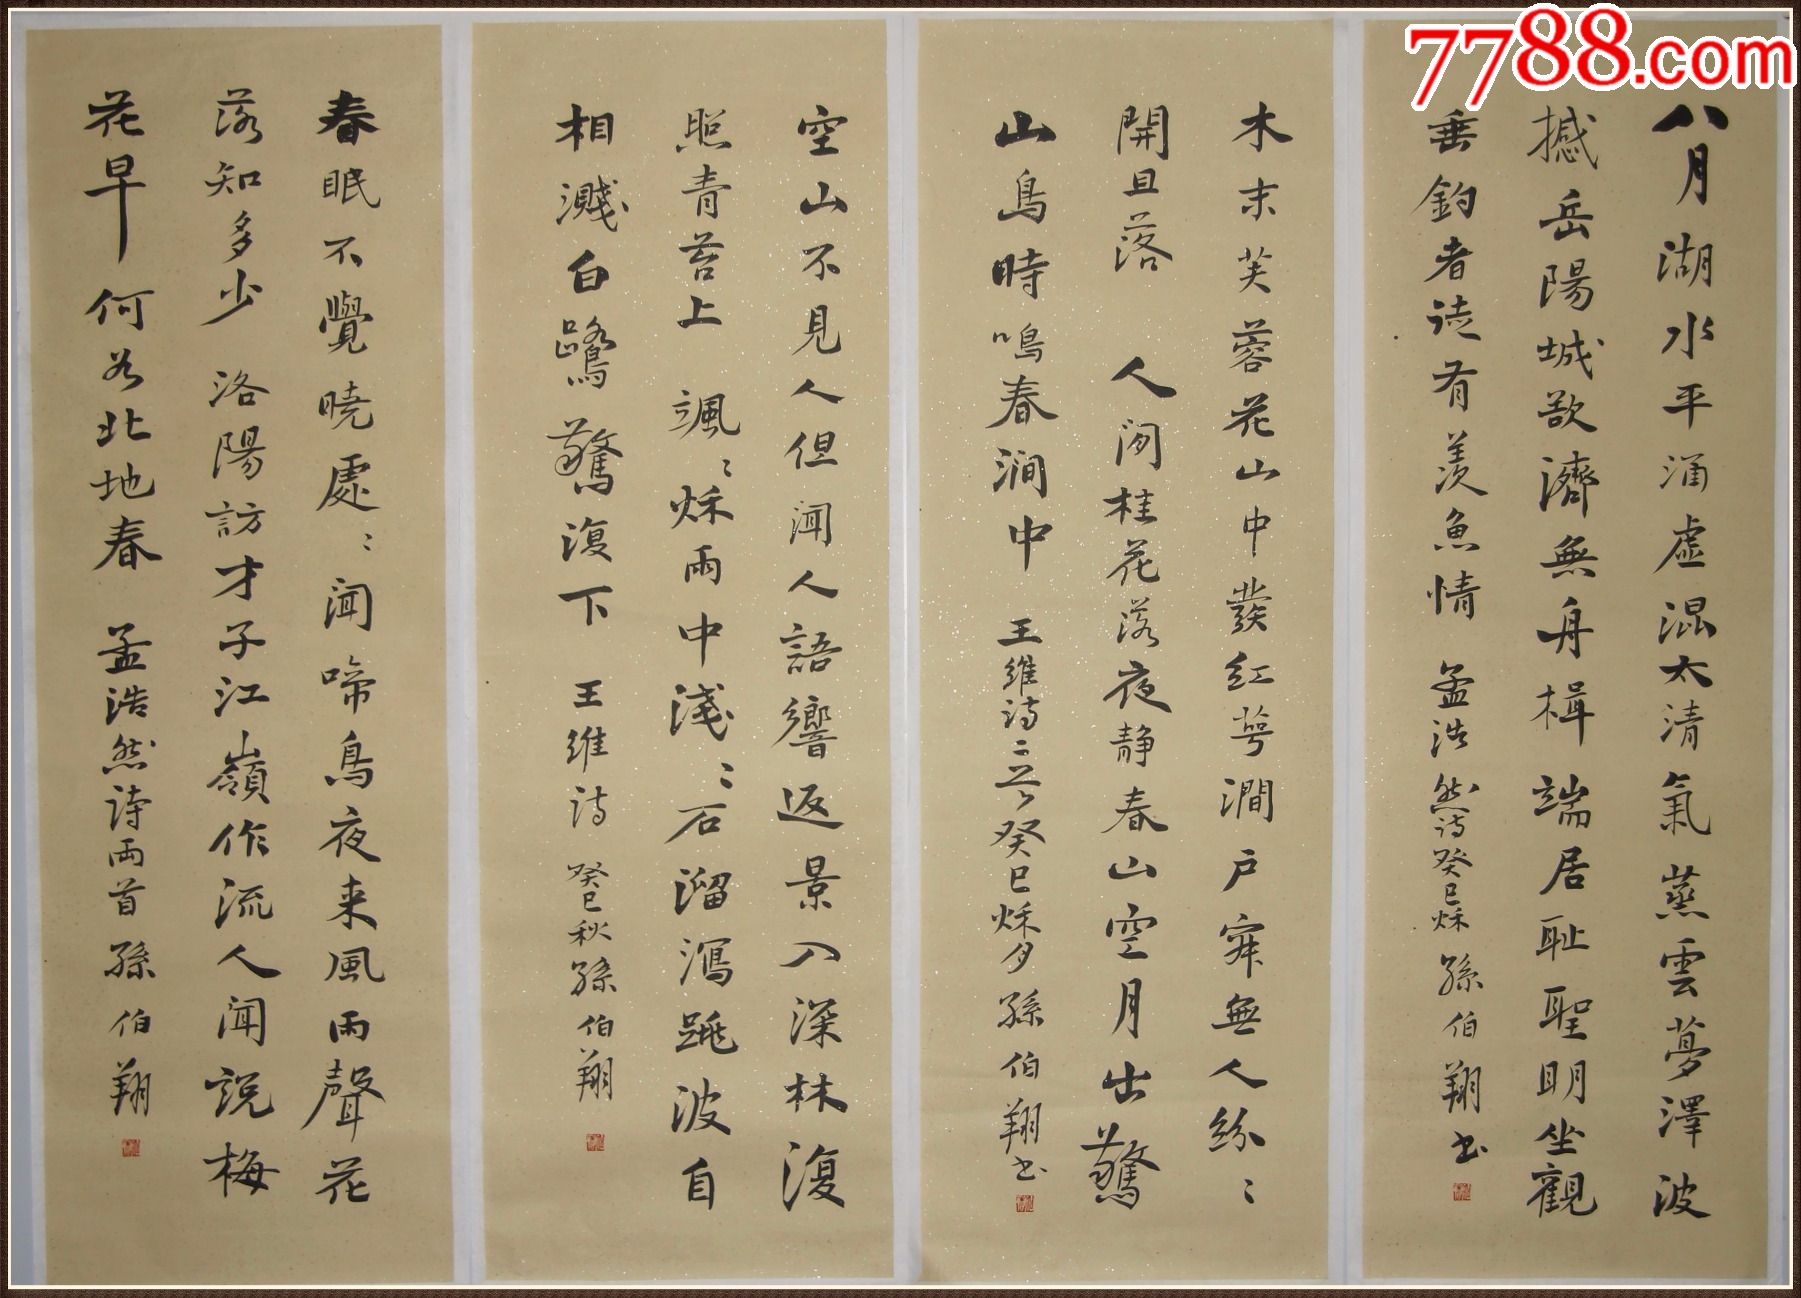 7788.com
八月湖水平涵虛混太清氣蒸雲夢澤波
撼岳陽城欲濟無舟楫端居耻聖明坐觀
垂釣者徒有羨魚情 孟浩然詩癸巳秌 孫伯翔书
木末芙蓉花山中發紅萼澗戶寂無人紛〻
開且落 人閒桂花落夜静春山空月出驚
山鳥時鳴春澗中 王維詩二首癸巳秌夕孫伯翔书
空山不見人但闻人語響返景入深林復
照青苔上 颯〻秌雨中淺〻石溜瀉跳波自
相濺白鷺驚復下 王維詩 癸巳秋孫伯翔
春眠不覺曉處〻闻啼鳥夜来風雨聲花
落知多少 洛陽訪才子江嶺作流人闻説梅
花早何如北地春 孟浩然詩兩首孫伯翔